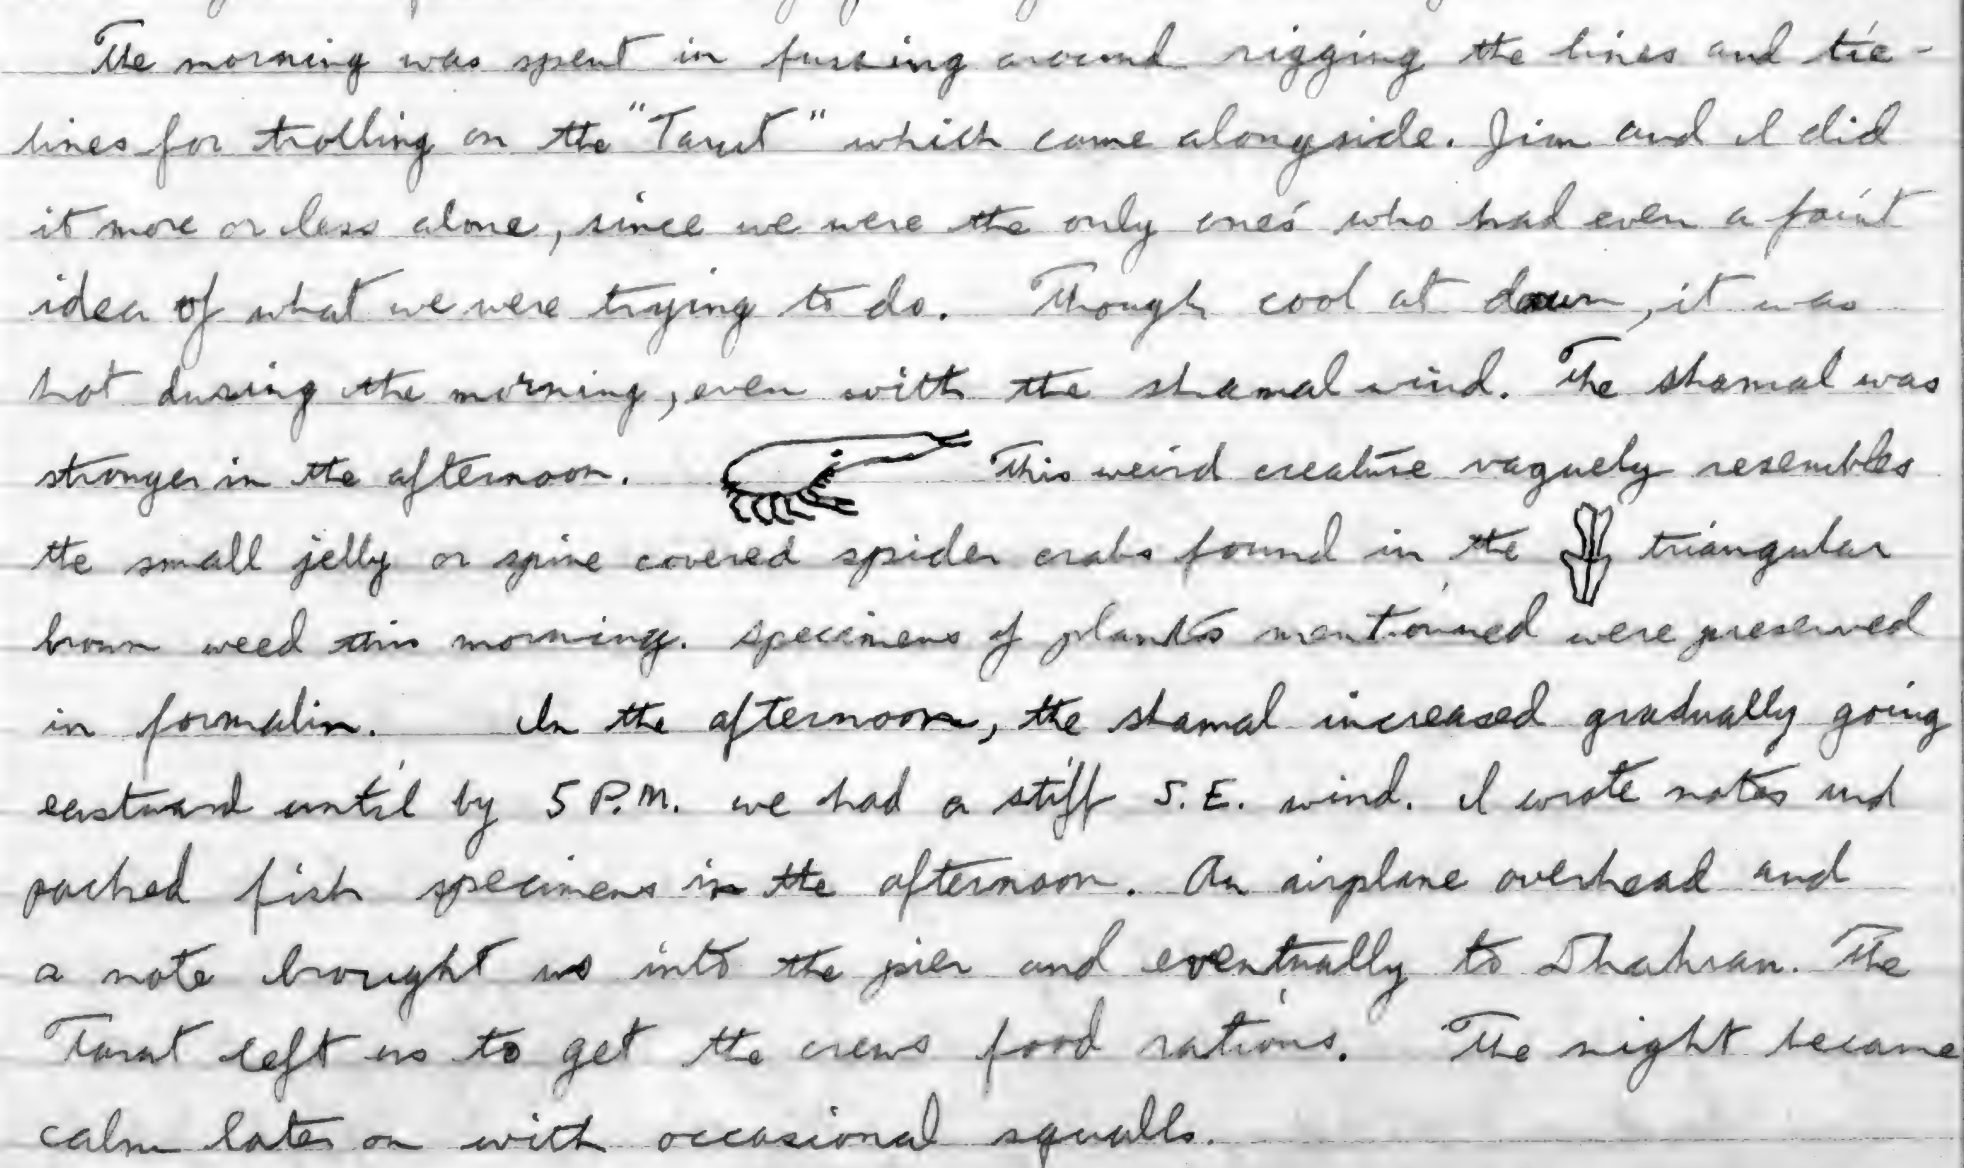 The morning was spent in fussing around rigging the lines and tie-
lines for trolling on the "Tarut" which came alongside. Jim and I did
it more or less alone, since we were the only ones who had even a faint
idea of what we were trying to do. Though cool at dawn, it was
hot during the morning, even with the shamal wind. The shamal was
stronger in the afternoon. This weird creature vaguely resembles
the small jelly or spine covered spider crabs found in the triangular
brown weed this morning. Specimens of plants mentionned were preserved
in formalin. In the afternoon, the shamal increased gradually going
eastward until by 5 P.M. we had a stiff S.E. wind. I wrote notes and
packed fish specimens in the afternoon. An airplane overhead and
a note brought us into the pier and eventually to Dhahran. The
Tarut left us to get the crews food rations. The night became
calm later on with occasional squalls.